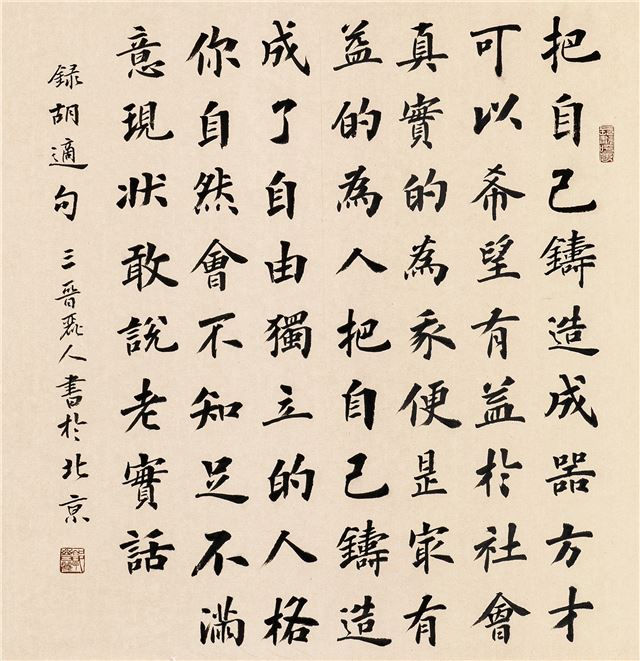 把自己鑄造成器方才
可以希望有益於社會
真實的為我便是冣有
益的為人把自己鑄造
成了自由獨立的人格
你自然會不知足不滿
意現狀敢說老實話
錄胡適句 三晉人書於北京